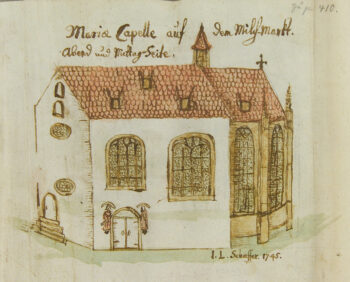 Zu pag. 410.
Maria Capelle auf dem Milchmarkt.
Abend und Mittag-Seite.
I. L. Schäffer. 1745.